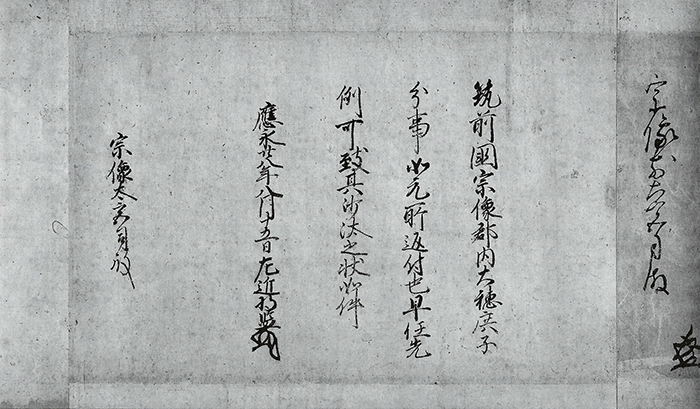 宗像大宮司殿
筑前國宗像郡内大穂庶子
分事如元所返付也早任先
例可致其沙汰之状如件
應永廿八年八月十五日左近将監
宗像大宮司殿